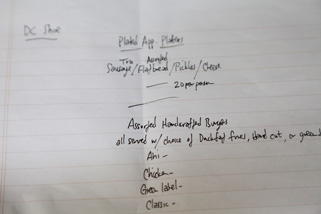 DC Shoe
Plated App. Platters
Trio Assorted
Sausage/Flatbread/Pickles/Cheese
20 per person
Assorted Handcrafted Burgers
all served w/ choice of Duckfat fries, Hand cut, or green
Ahi -
Chicken -
Green label -
Classic -